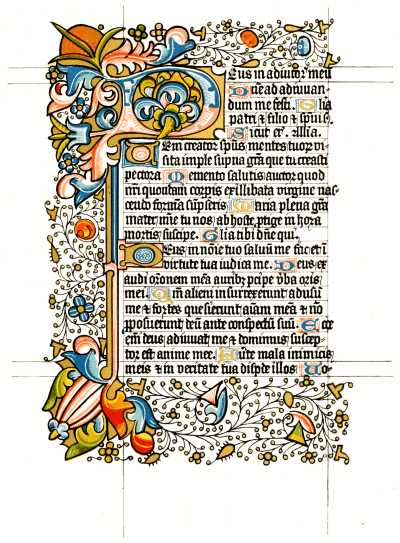 Deus in adiutor meū
Dñe ad adiuuan
dum me festi. Glia
patri & filio & spūi s.
Sicut er. Allīa.
Veni creator spūs mentes tuorz vi
sita imple supna grā que tu creasti
pectora. Memento salutis auctor quod
nr̄i quondam corpis ex illibata virgine nas
cendo formā sūpseris. Maria plena grā
mater mīe tu nos ab hoste ptige in hora
mortis suscipe. Glia tibi dñe qui.
Deus in noīe tuo saluū me fac et ī
virtute tua iudica me. Deus ex
audi orōnem meā aurib pcipe v̄ba oris
mei. Qm̄ alieni insurrexerunt aduersū
me & fortes quesierunt aīam meā & nō
posuerunt deū ante conspectū suū. Ecce
em̄ deus adiuuat me & dominus suscep
tor est anime mee. Auerte mala inimicis
meis & in veritate tua dispde illos. Uo